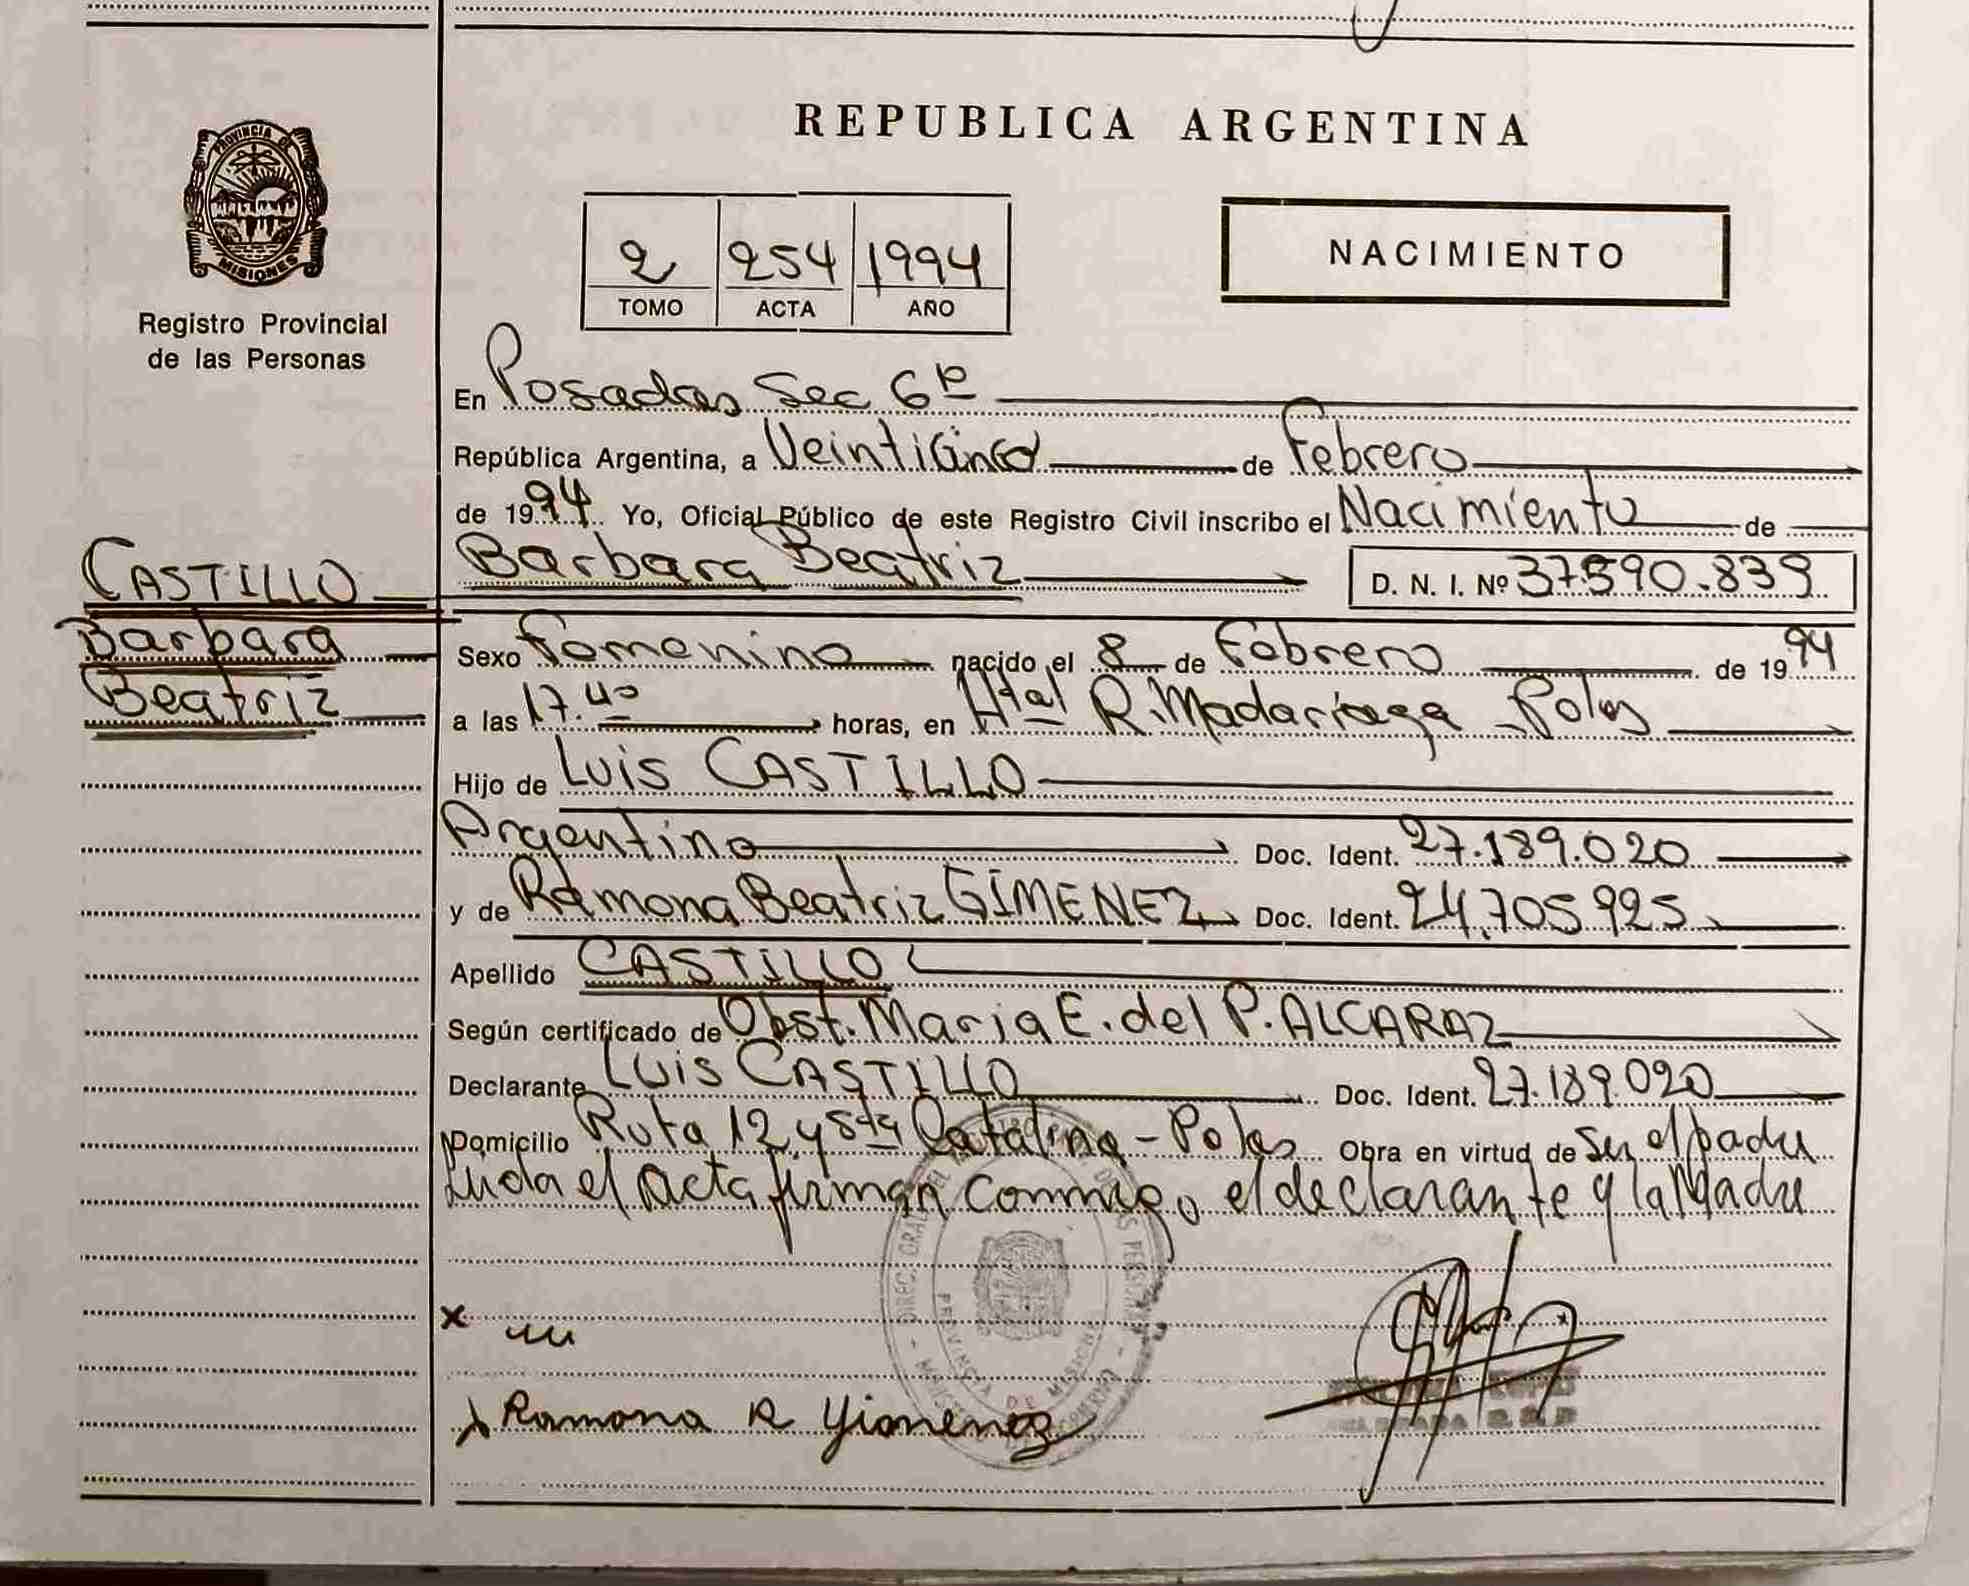 REPUBLICA ARGENTINA
PROVINCIA DE
MISIONES
Registro Provincial
de las Personas
2 254 1994
TOMO ACTA AÑO
NACIMIENTO
En Posadas Sec 6ª
República Argentina, a Veinticinco de Febrero
de 1994 Yo, Oficial Público de este Registro Civil inscribo el Nacimiento de
CASTILLO
Barbara
Beatriz
Barbara Beatriz D. N. I. Nº 37.590.839
Sexo Femenino nacido el 8 de Febrero de 1994
a las 17.40 horas, en Htal R. Madariaga - Pdas
Hijo de Luis CASTILLO
Argentino Doc. Ident. 27.189.020
y de Ramona Beatriz GIMENEZ Doc. Ident. 24.705.925
Apellido CASTILLO
Según certificado de Obst. Maria E. del P. ALCARAZ
Declarante Luis CASTILLO Doc. Ident. 27.189.020
Domicilio Ruta 12 y Sta Catalina - Pdas Obra en virtud de ser el padre
Leida el Acta firman conmigo el declarante y la Madre
x
Ramona R Gimenez
DE MISIONES